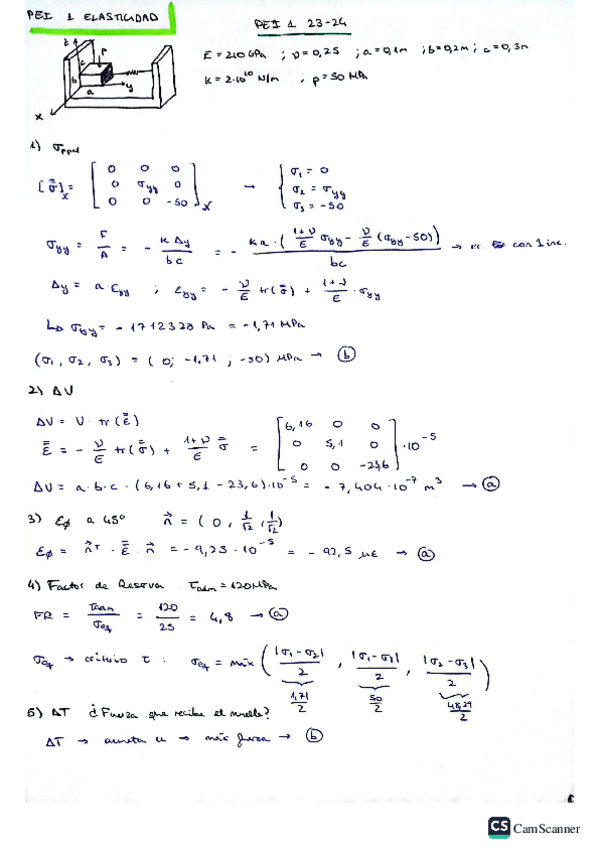 PEI 1 ELASTICIDAD
PEI 1 23-24
E = 210 GPa ; ν = 0,25 ; a = 0,1m ; b = 0,2m ; c = 0,3m
K = 2·10¹⁰ N/m ; p = 50 MPa
z
c
p
b
a
y
x
1) σppal
[σ̿]x = [0 0 0; 0 σyy 0; 0 0 -50]x → { σ1 = 0
σ2 = σyy
σ3 = -50
σyy = F/A = - KΔy/bc = - Ka·(1+ν/E σyy - ν/E (σyy-50))/bc → ec con 1 inc.
Δy = a·Eyy ; Eyy = - ν/E tr(σ̿) + 1+ν/E · σyy
↳ σyy = -1712328 Pa = -1,71 MPa
(σ1, σ2, σ3) = (0; -1,71 ; -50) MPa → b
2) ΔV
ΔV = V · tr(E̿)
E̿ = - ν/E tr(σ̿) + 1+ν/E σ̿ = [6,16 0 0; 0 5,1 0; 0 0 -23,6] ·10⁻⁵
ΔV = a·b·c·(6,16 + 5,1 - 23,6)·10⁻⁵ = -7,404·10⁻⁷ m³ → a
3) Eφ a 45° n⃗ = (0, 1/√2, 1/√2)
Eφ = n⃗ᵀ · E̿ · n⃗ = -9,25·10⁻⁵ = -92,5 με → a
4) Factor de Reserva τadm = 120MPa
FR = τadm/σeq = 120/25 = 4,8 → a
σeq → criterio τ : σeq = máx (|σ1-σ2|/2 , |σ1-σ3|/2 , |σ2-σ3|/2)
1,71/2 50/2 48,29/2
5) ΔT ¿Fuerza que recibe el muelle?
ΔT → aumenta u → más fuerza → b
CS CamScanner